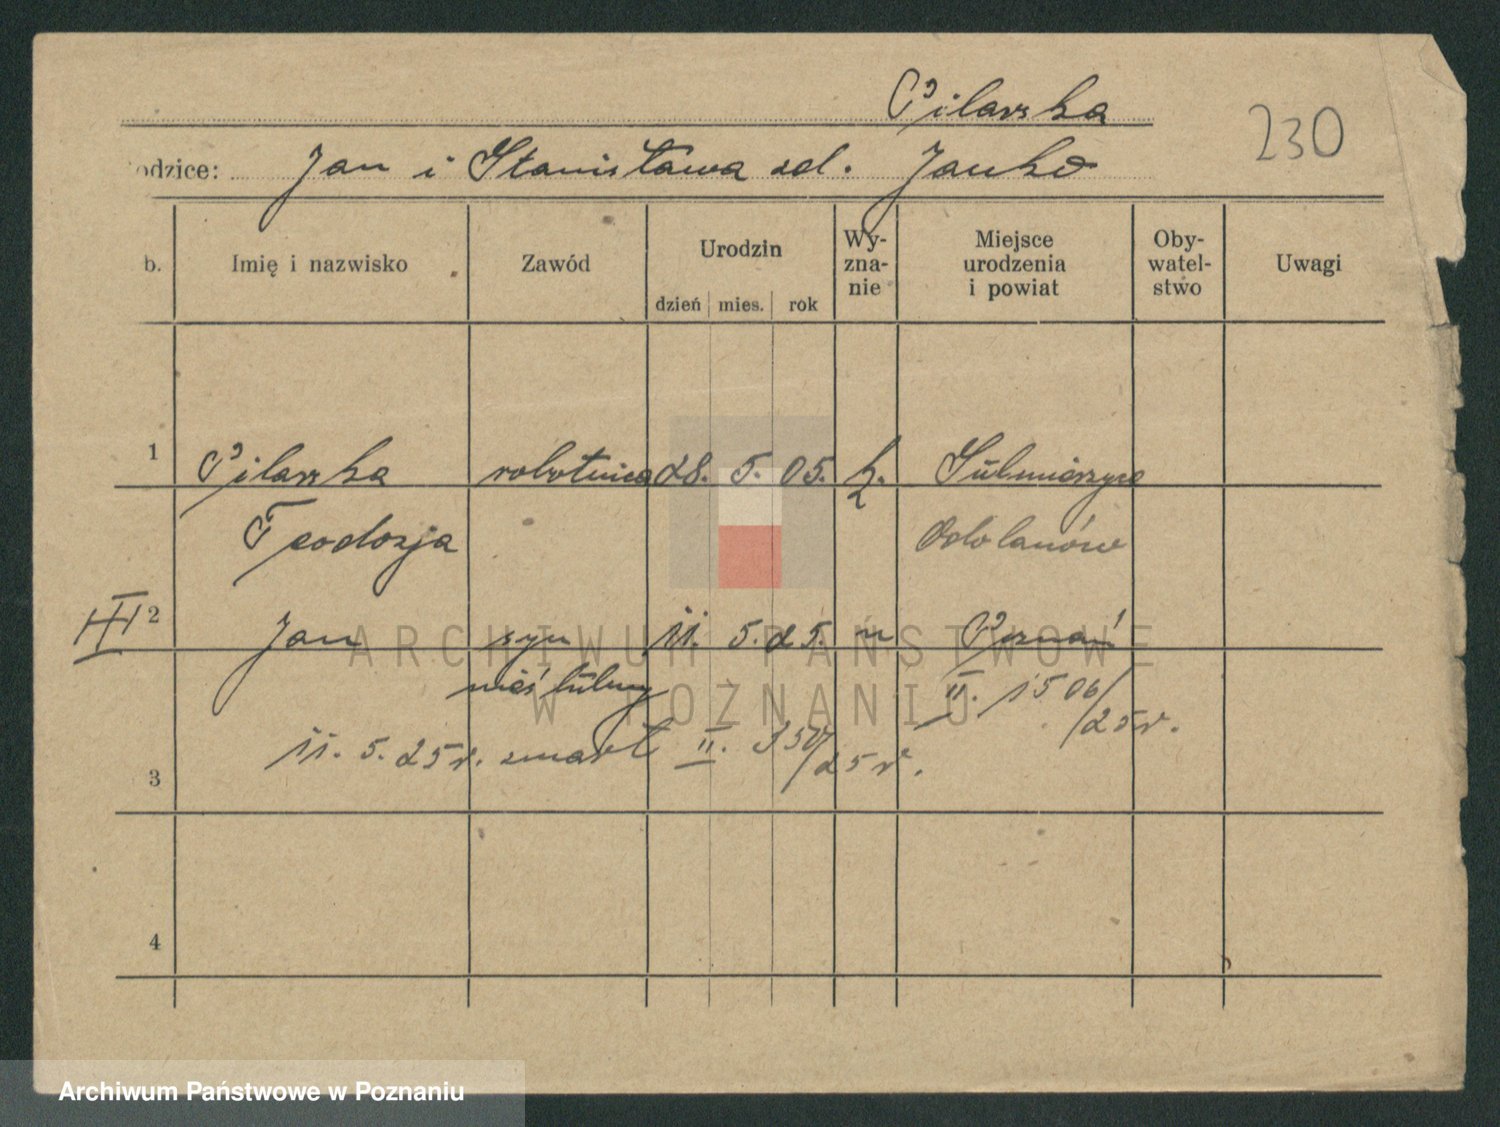 Pilarska
230
odzice: Jan i Stanisława zd. Janko
b.
Imię i nazwisko
Zawód
Urodzin
dzień mies. rok
Wy-
zna-
nie
Miejsce
urodzenia
i powiat
Oby-
watel-
stwo
Uwagi
1 Pilarska robotnica 28. 5. 05. k. Sulmierzyce
Teodozja Odolanów
III 2 Jan syn 11. 5. 25. " Poznań
nieślubny II. 1506/25r.
11. 5. 25r. zmarł II. 350/25r.
3
4
ARCHIWUM PAŃSTWOWE
W POZNANIU
Archiwum Państwowe w Poznaniu